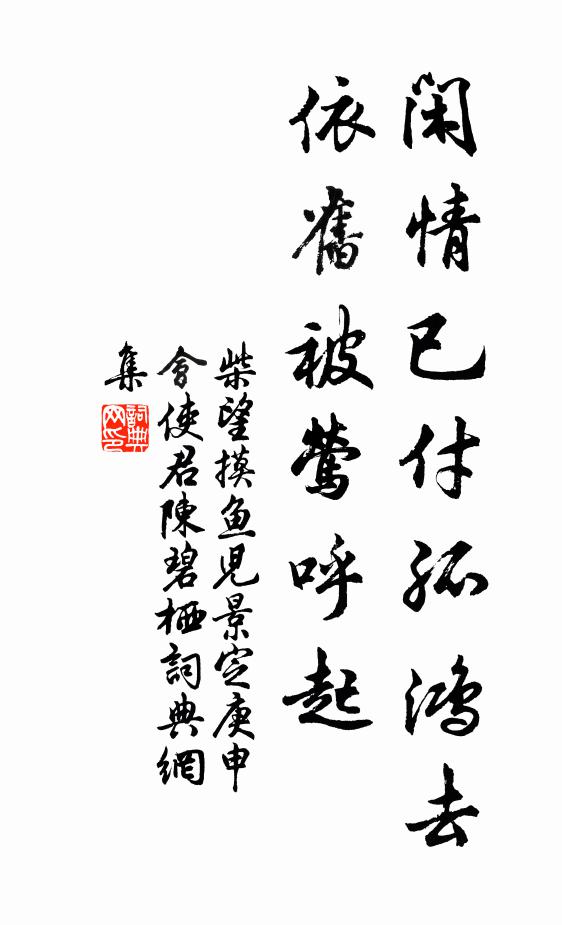 閑情已付孤鸿去
依舊被鶯呼起
柴望摸鱼児景定庚申
會使君陳碧栖詞典網
集
詞典网印